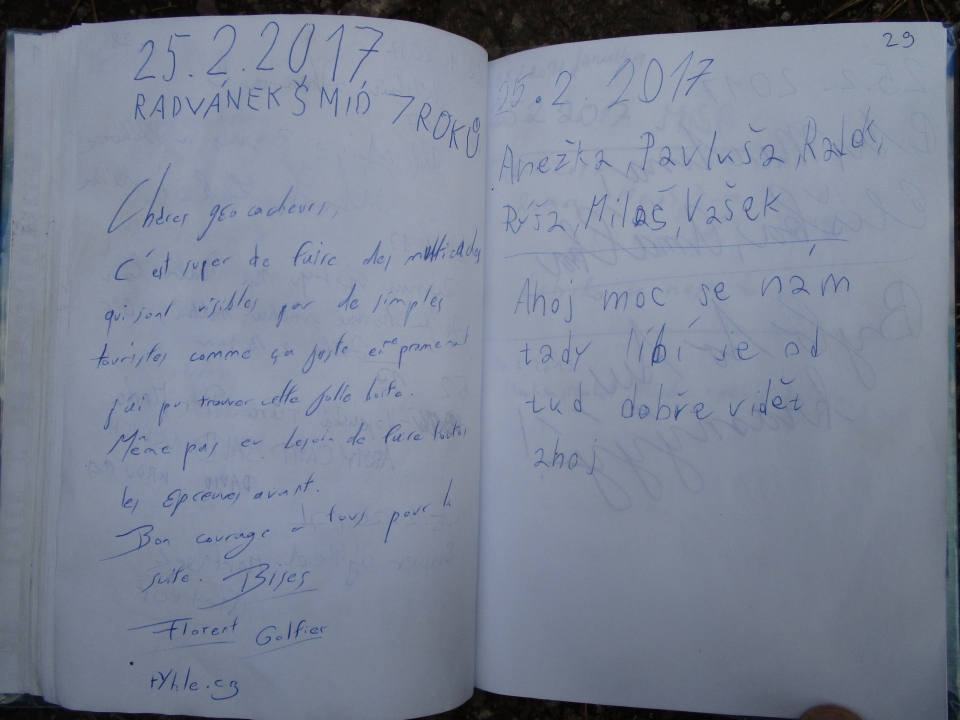 25.2.2017
RADVÁNEK ŠMÍD 7 ROKŮ
Chères géocacheurs,
C'est super de faire des multicaches
qui sont visibles par de simples
touristes comme ça juste en me promenant
j'ai pu trouver cette folle boîte.
Même pas eu besoin de faire toutes
les épreuves avant.
Bon courage à tous pour la
suite. Bises
Florent Golfier
tYhle.cz
29
25.2. 2017
Anežka, Pavluša, Radek,
Rýša, Miloš, Vašek
Ahoj moc se nám
tady líbí je od
tud dobře vidět
ahoj